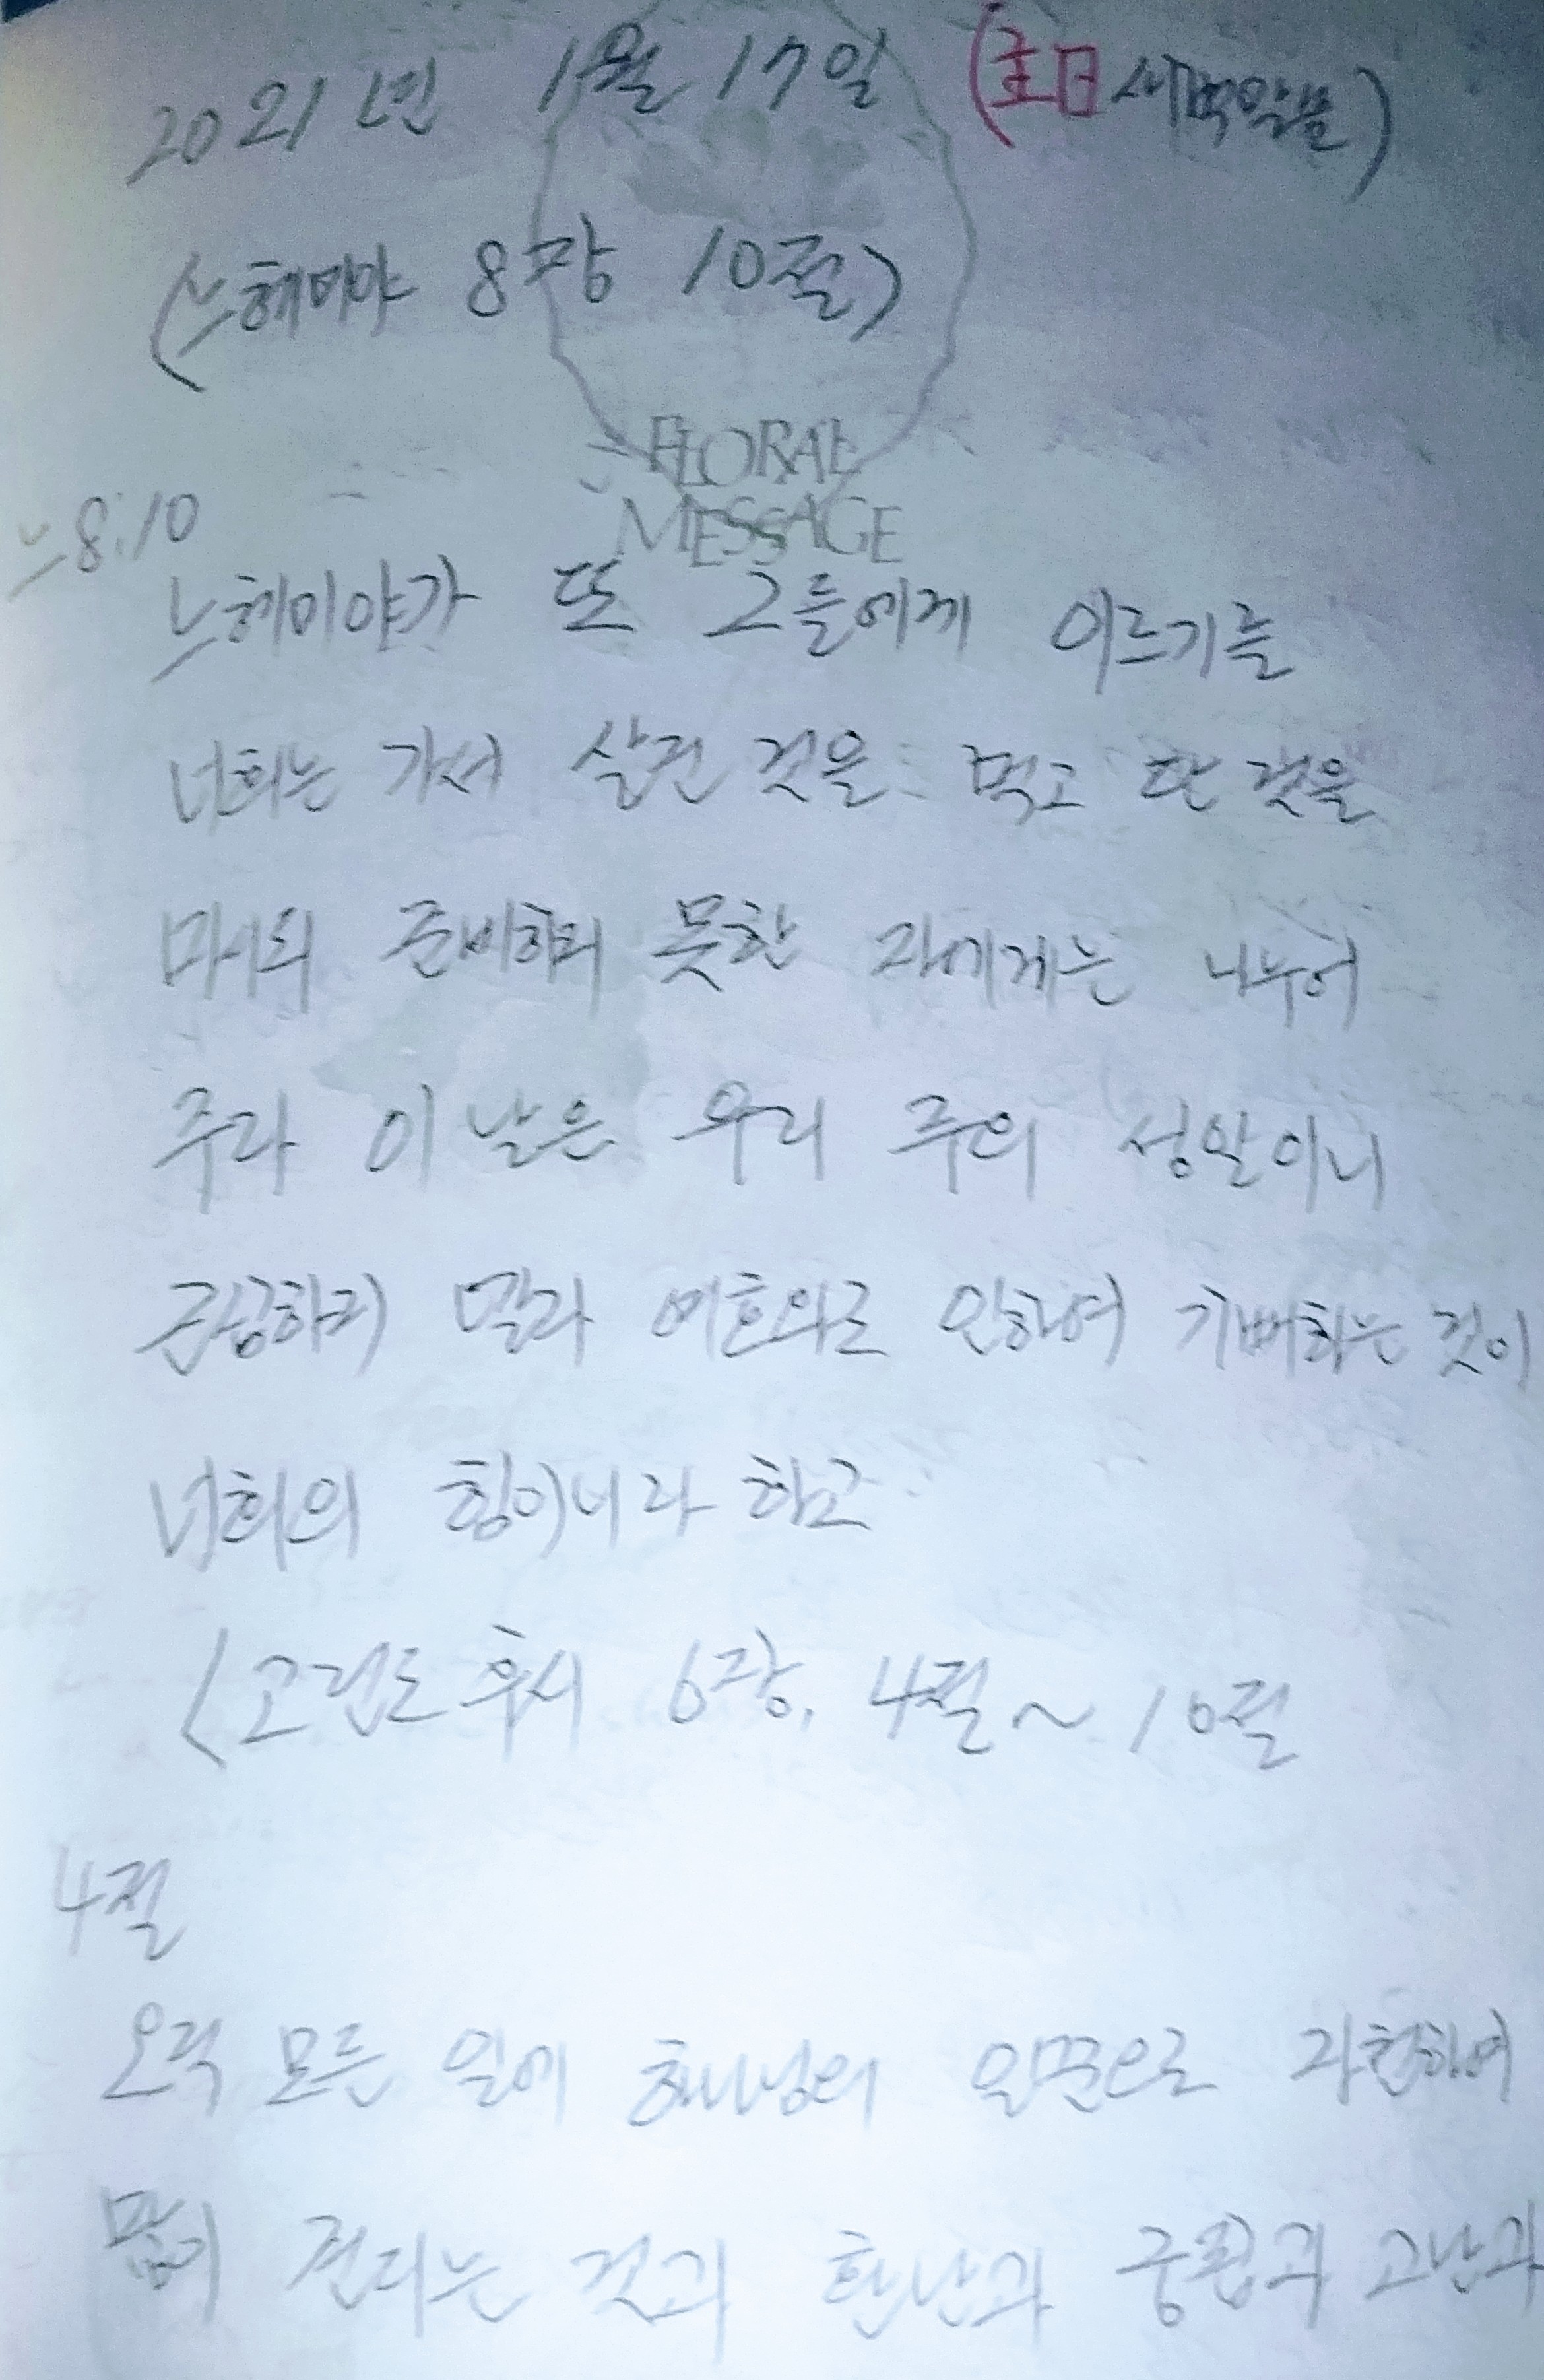 2021년 1월 17일 (主日 새벽말씀)
(느헤미야 8장 10절)
FLORAL
MESSAGE
느8:10
느헤미야가 또 그들에게 이르기를
너희는 가서 살진 것을 먹고 단 것을
마시되 준비하지 못한 자에게는 나누어
주라 이 날은 우리 주의 성일이니
근심하지 말라 여호와로 인하여 기뻐하는 것이
너희의 힘이니라 하고
<고린도후서 6장, 4절~10절
4절
오직 모든 일에 하나님의 일꾼으로 자천하여
많이 견디는 것과 환난과 궁핍과 고난과